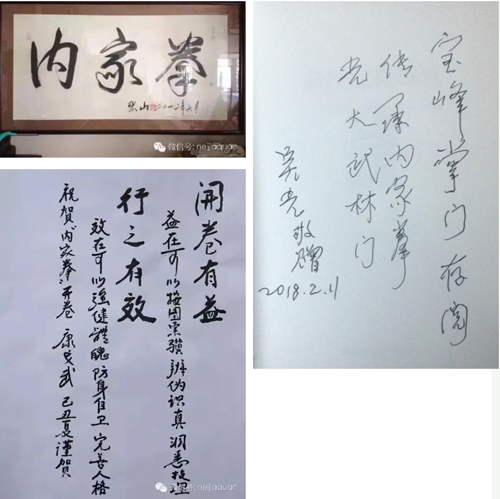 内家拳
岱山 二〇一二年六月
微信号: neijiaquan
宝峰掌门存阅
传承内家拳
光大武林门
吴光敬赠
2018.2.11
開卷有益
益在可以按图索骥辨伪识真洞悉技理
行之有效
效在可以强健體魄防身自卫完善人格
祝賀《内家拳》开卷 康戈武 己丑夏谨賀
微信号: neijiaquan